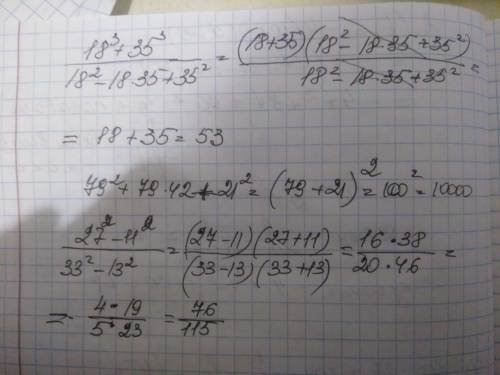 (18³+35³)/(18²-18·35+35²) = ((18+35)(18²-18·35+35²))/(18²-18·35+35²) =
= 18+35=53
79²+79·42+21²=(79+21)²=100²=10000
(27²-11²)/(33²-13²) = ((27-11)(27+11))/((33-13)(33+13)) = (16·38)/(20·46) =
= (4·19)/(5·23) = 76/115